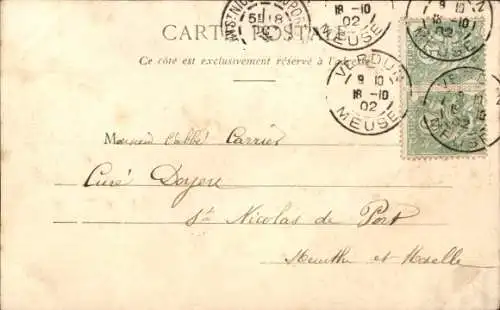 CARTE POSTALE
Ce côté est exclusivement réservé à l'
ST NICOLAS
5E 18
VERDUN
9 10
18-10
02
MEUSE
18-10
02
MEUSE
9 10
02
MEUSE
Monsieur l'abbé Carrier
Curé Doyen
St Nicolas de Port
Meurthe et Moselle